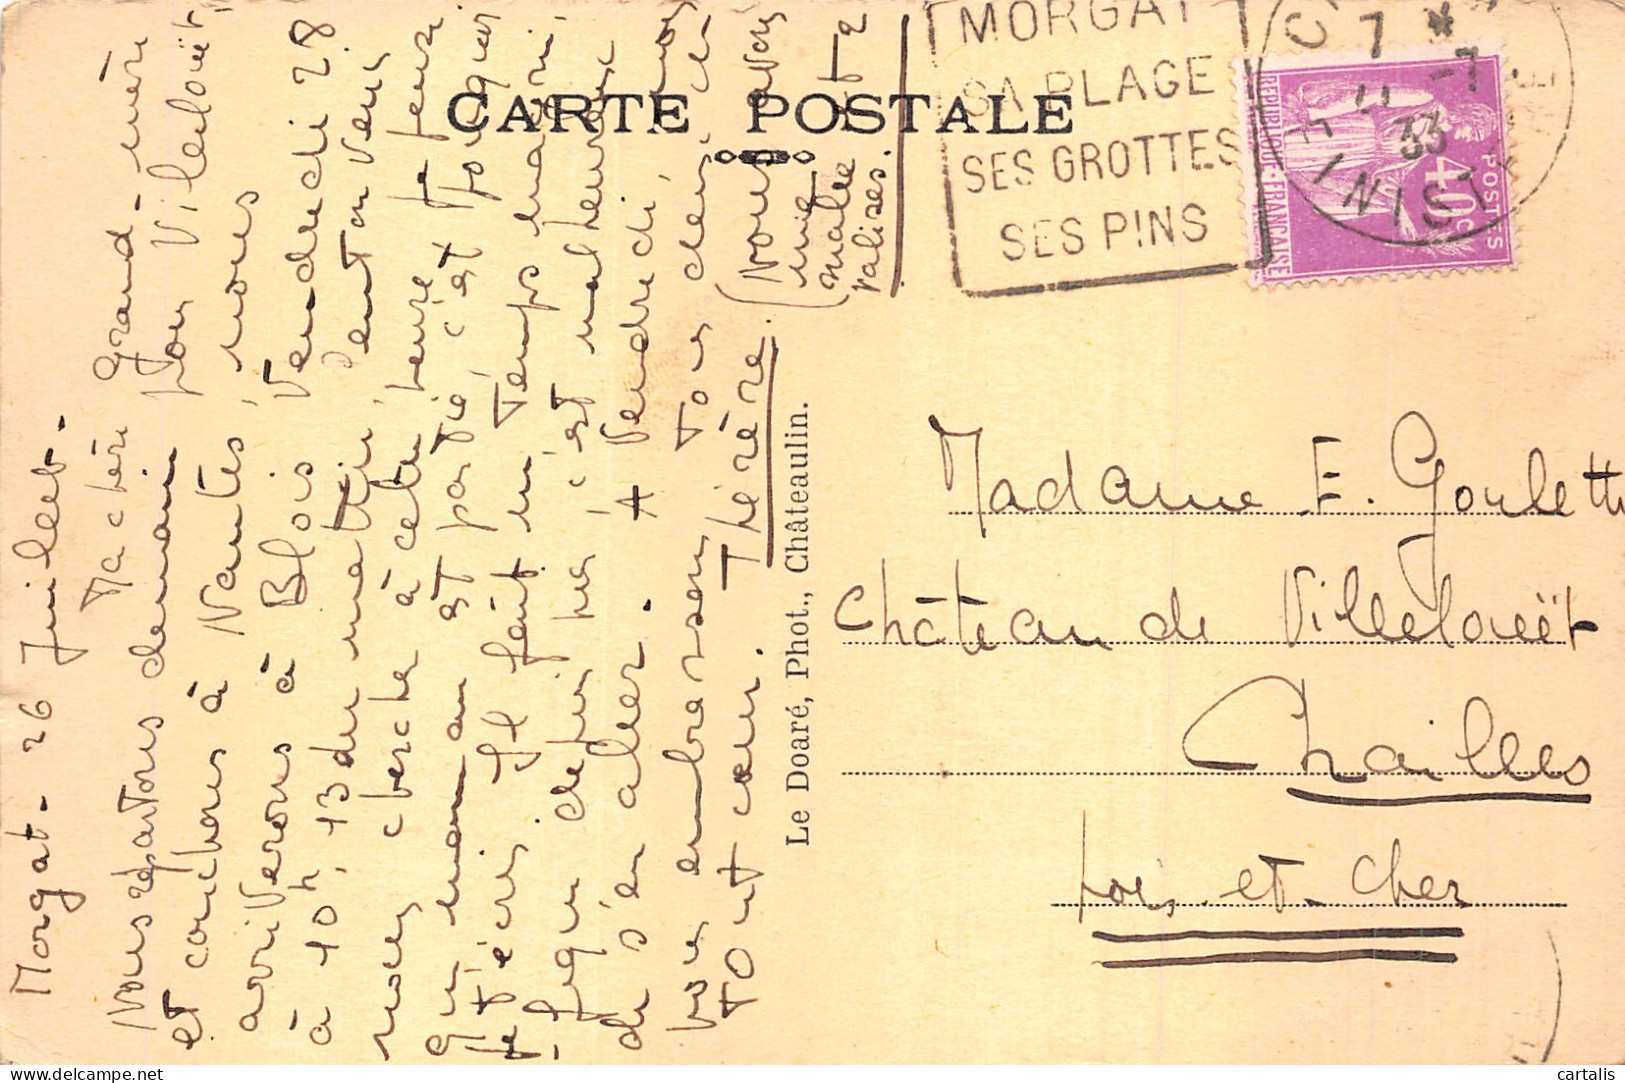 Morgat - 26 Juillet -
Ma chère Grand-mère
Nous repartons demain pour Villelouët,
et couchons à Nantes, nous
arriverons à Blois Vendredi 28
à 10h,13 du matin, Peut on venir
nous chercher à cette heure
qui maman est partie, c'est pourquoi
je t'écris. Il fait un temps
depuis hier, c'est malheureux
de s'en aller. A Vendredi, nous
vous embrassons tous deux, de
tout cœur. Thérèse. (Nous avons
une
malle et 2
valises.
CARTE POSTALE
Le Doaré, Phot., Châteaulin.
MORGAT
SA PLAGE
SES GROTTES
SES PINS
7 *
-7
33
FINISTERE
REPUBLIQUE-FRANÇAISE
40c
POSTES
Madame E. Goulette
Château de Villelouët
Chailles
Loir-et-Cher
cartalis